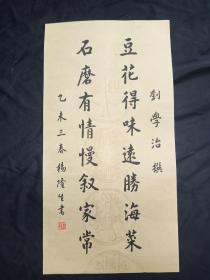 劉學治撰
豆花得味遠勝海菜
石磨有情慢叙家常
乙未三春楊隆生書